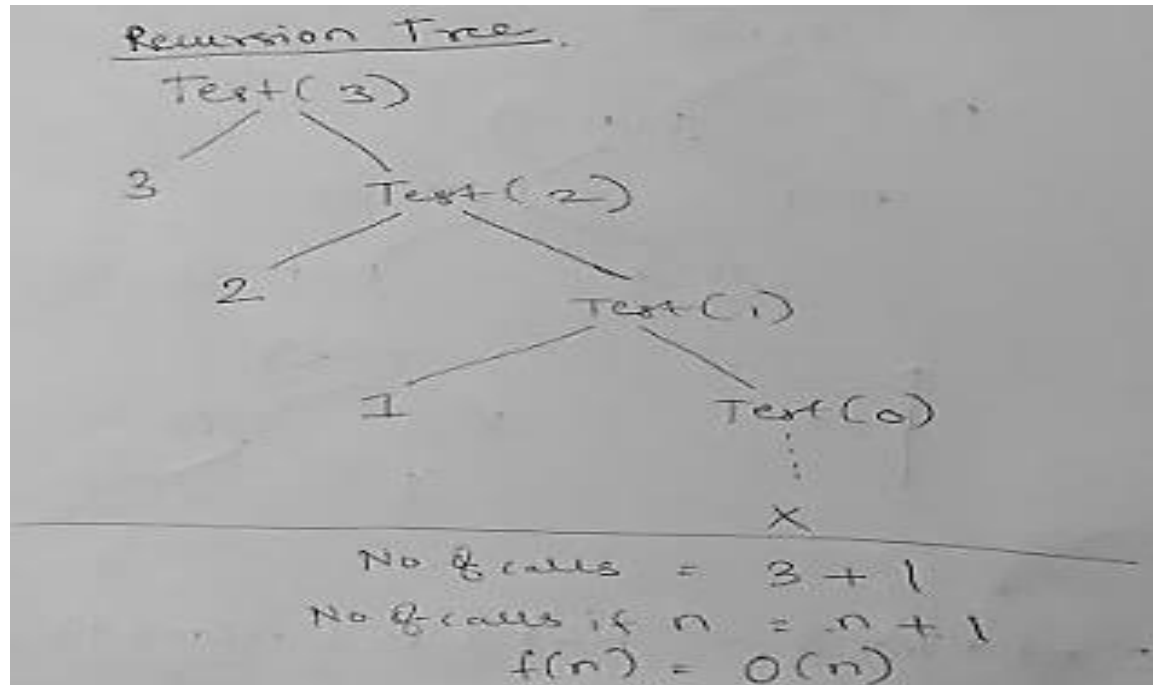 Recursion Tree.
Test(3)
3 Test(2)
2 Test(1)
1 Test(0)
X
No of calls = 3 + 1
No of calls if n = n + 1
f(n) = O(n)